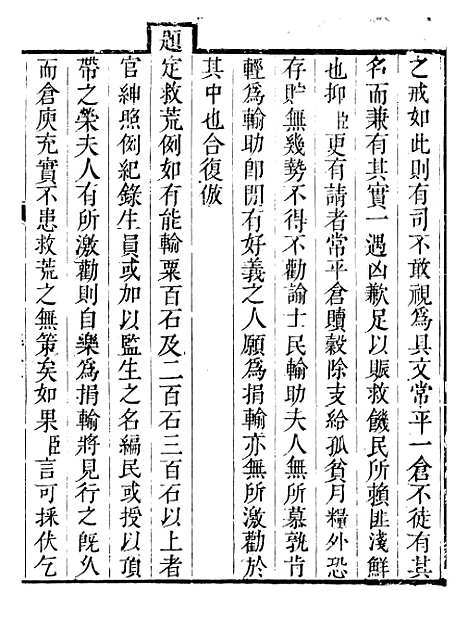 之戒如此則有司不敢視爲具文常平一倉不徒有其
名而兼有其實一遇凶歉足以賑救饑民所賴匪淺鮮
也抑臣更有請者常平倉贖穀除支給孤貧月糧外恐
存貯無幾勢不得不勸諭士民輸助夫人無所慕孰肯
輕爲輸助卽閒有好義之人願爲捐輸亦無所激勸於
其中也合復倣
題定救荒例如有能輸粟百石及二百石三百石以上者
官紳照例紀錄生員或加以監生之名編民或授以頂
帶之榮夫人有所激勸則自樂爲捐輸將見行之旣久
而倉庾充實不患救荒之無策矣如果臣言可採伏乞